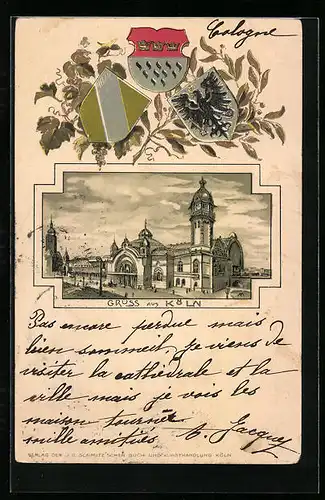 Cologne
GRUSS aus KÖLN
Pas encore perdue mais
bien sommeil, je viens de
visiter la cathédrale et la
ville mais je vois les
maison tourner
mille amitiés A. Jacques
VERLAG DER J. G. SCHMITZ'SCHEN BUCH UND KUNSTHANDLUNG KÖLN